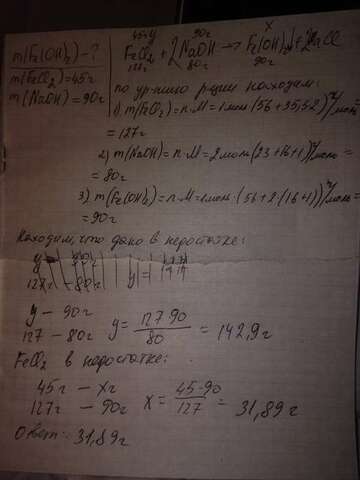 m(Fe(OH)₂) - ?
m(FeCl₂) = 45г
m(NaOH) = 90г
45г 90г x
FeCl₂ + 2NaOH → Fe(OH)₂↓ + 2NaCl
127г 80г 90г
по ур-нию р-ции находим:
1) m(FeCl₂) = n·M = 1моль (56+35,5·2) г/моль =
= 127г
2) m(NaOH) = n·M = 2моль (23+16+1) г/моль =
= 80г
3) m(Fe(OH)₂) = n·M = 1моль·(56+2·(16+1)) г/моль =
= 90г
Находим, что дано в недостатке:
127г - 80г
y - 90г
127 - 80г y = 127·90 / 80 = 142,9г
FeCl₂ в недостатке:
45г - xг
127г - 90г x = 45·90 / 127 = 31,89г
Ответ: 31,89г